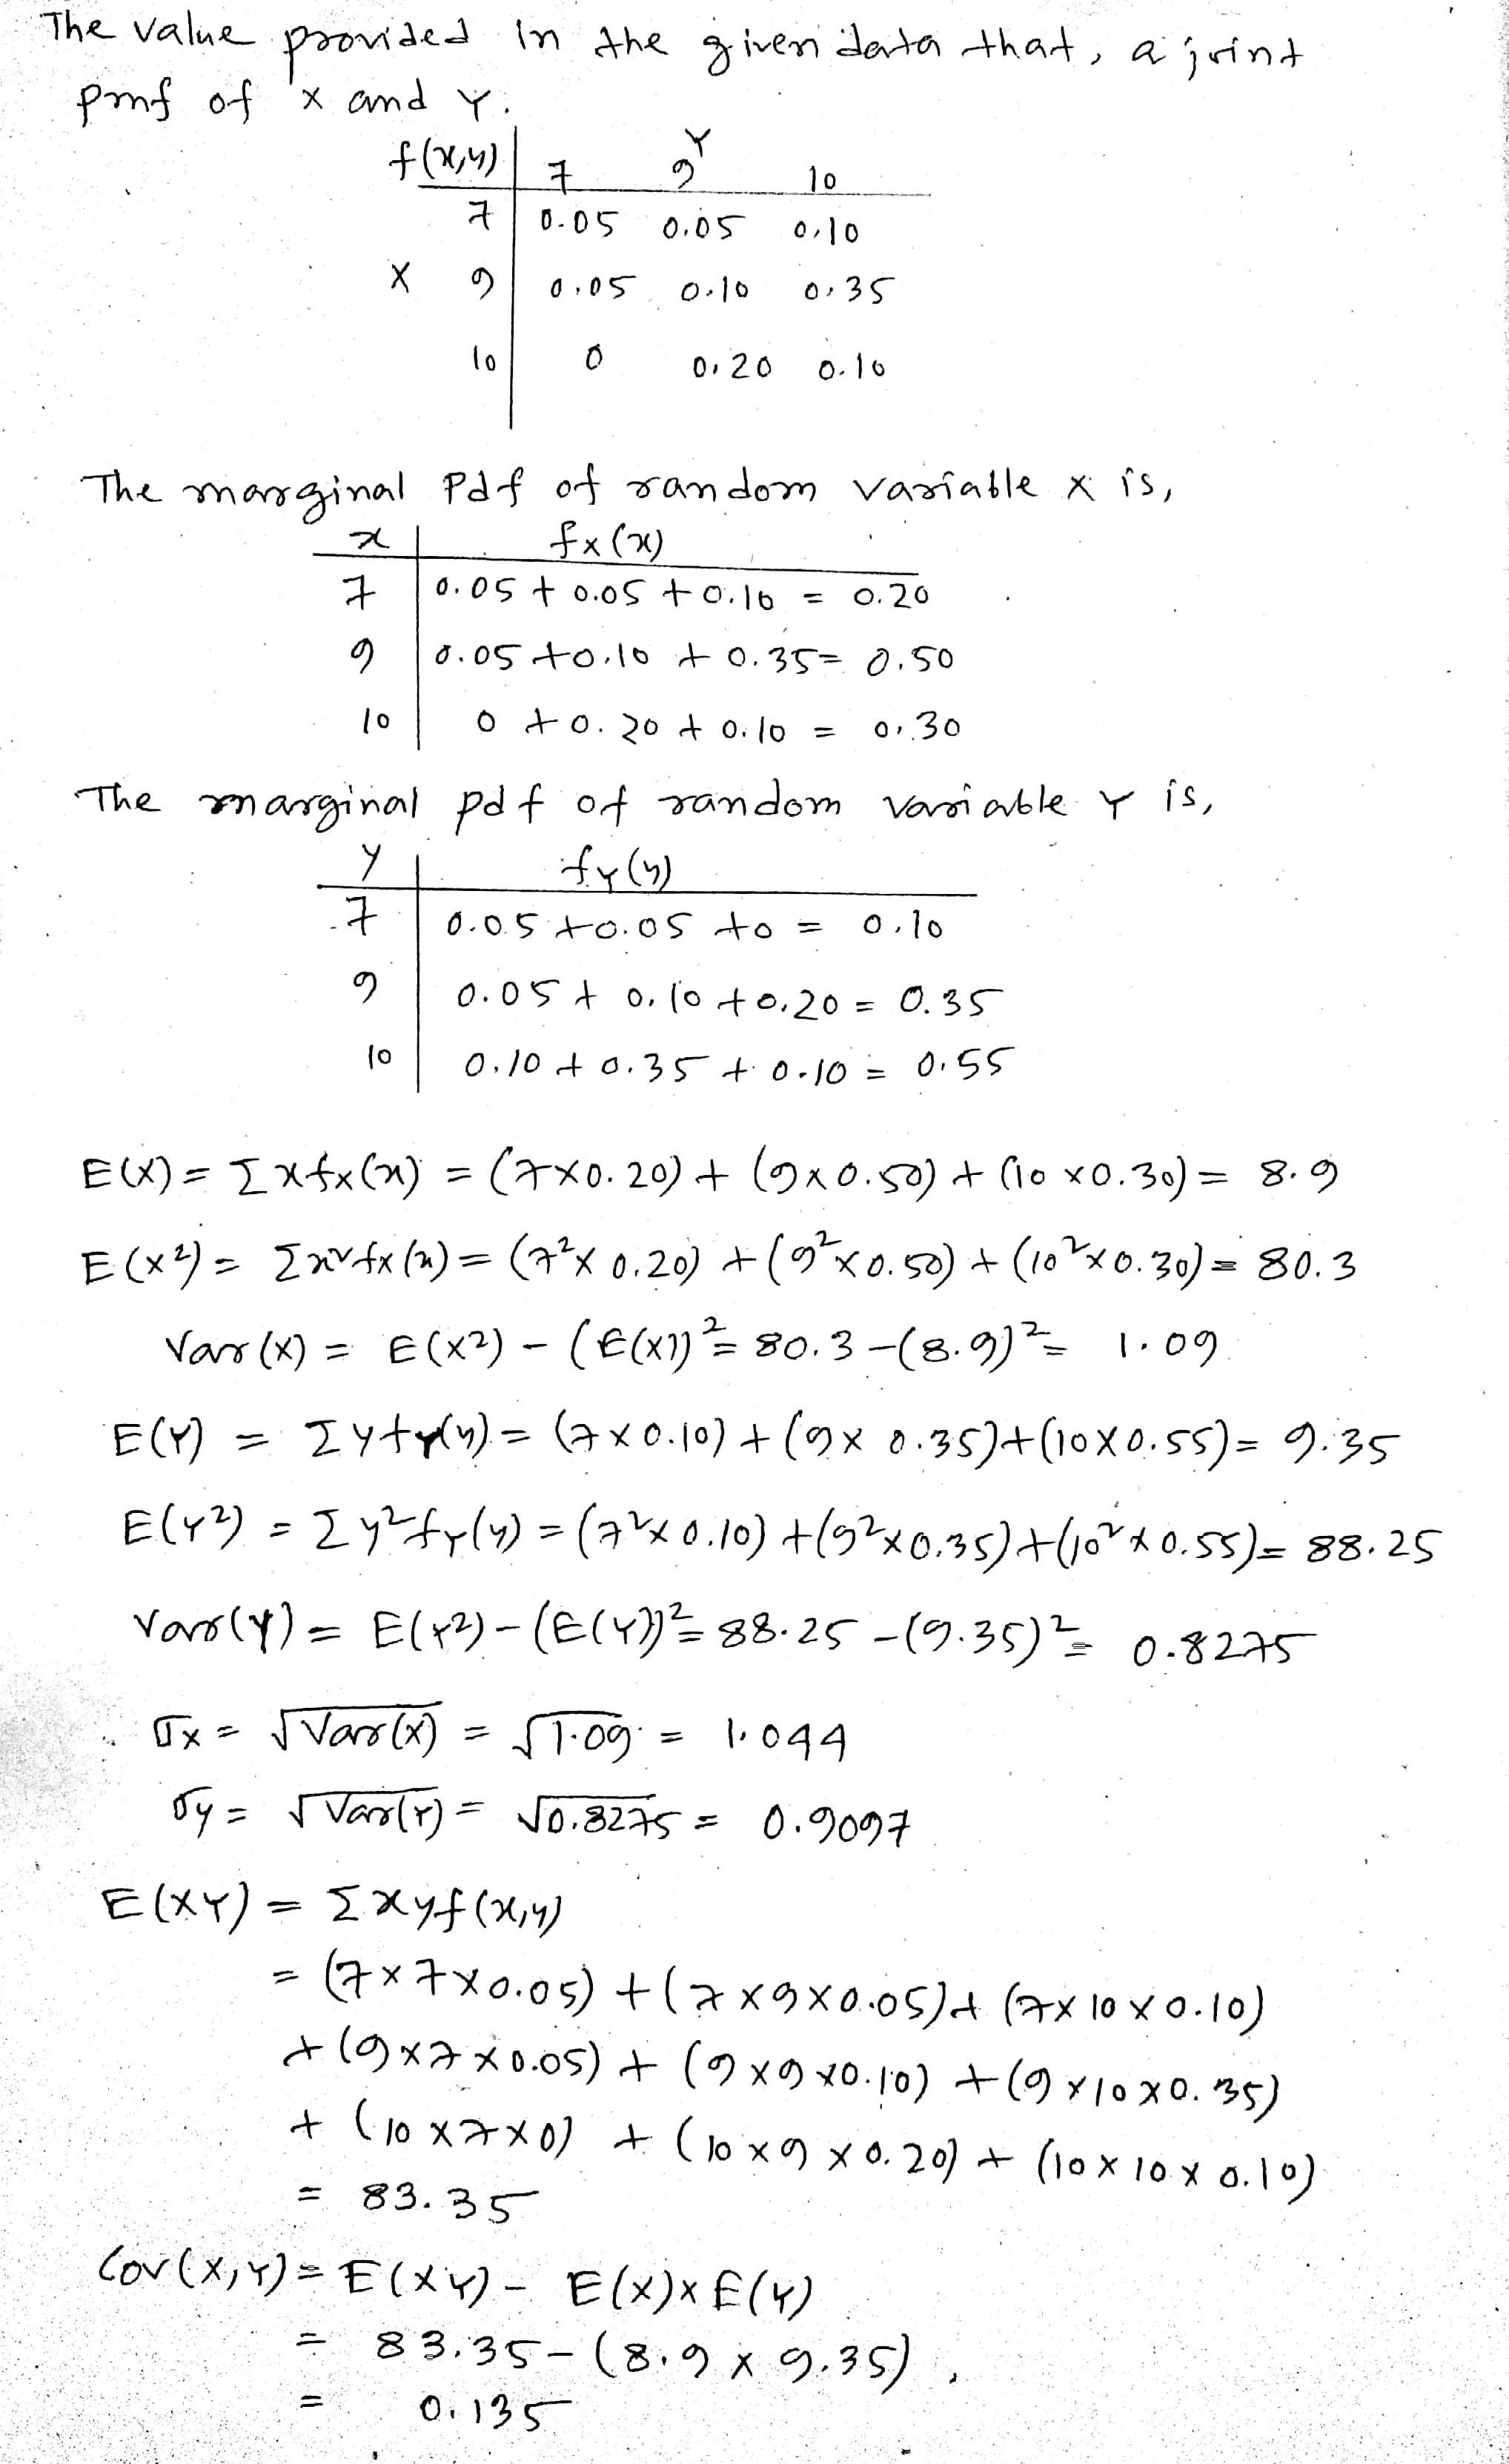 The value provided in the given data that, a joint
pmf of x and Y.
Y
f(x,y) 7 9 10
7 0.05 0.05 0.10
X 9 0.05 0.10 0.35
10 0 0.20 0.10
The marginal Pdf of random variable x is,
x fx(x)
7 0.05 + 0.05 + 0.10 = 0.20
9 0.05 + 0.10 + 0.35 = 0.50
10 0 + 0.20 + 0.10 = 0.30
The marginal pdf of random variable Y is,
y fY(y)
7 0.05 + 0.05 + 0 = 0.10
9 0.05 + 0.10 + 0.20 = 0.35
10 0.10 + 0.35 + 0.10 = 0.55
E(X) = Σxfx(x) = (7×0.20) + (9×0.50) + (10×0.30) = 8.9
E(x²) = Σx²fx(x) = (7²×0.20) + (9²×0.50) + (10²×0.30) = 80.3
Var(X) = E(X²) - (E(X))² = 80.3 - (8.9)² = 1.09
E(Y) = ΣyfY(y) = (7×0.10) + (9×0.35) + (10×0.55) = 9.35
E(Y²) = Σy²fY(y) = (7²×0.10) + (9²×0.35) + (10²×0.55) = 88.25
Var(Y) = E(Y²) - (E(Y))² = 88.25 - (9.35)² = 0.8275
σx = √Var(X) = √1.09 = 1.044
σy = √Var(Y) = √0.8275 = 0.9097
E(XY) = Σxyf(x,y)
= (7×7×0.05) + (7×9×0.05) + (7×10×0.10)
+ (9×7×0.05) + (9×9×0.10) + (9×10×0.35)
+ (10×7×0) + (10×9×0.20) + (10×10×0.10)
= 83.35
Cov(X,Y) = E(XY) - E(X)×E(Y)
= 83.35 - (8.9×9.35)
= 0.135